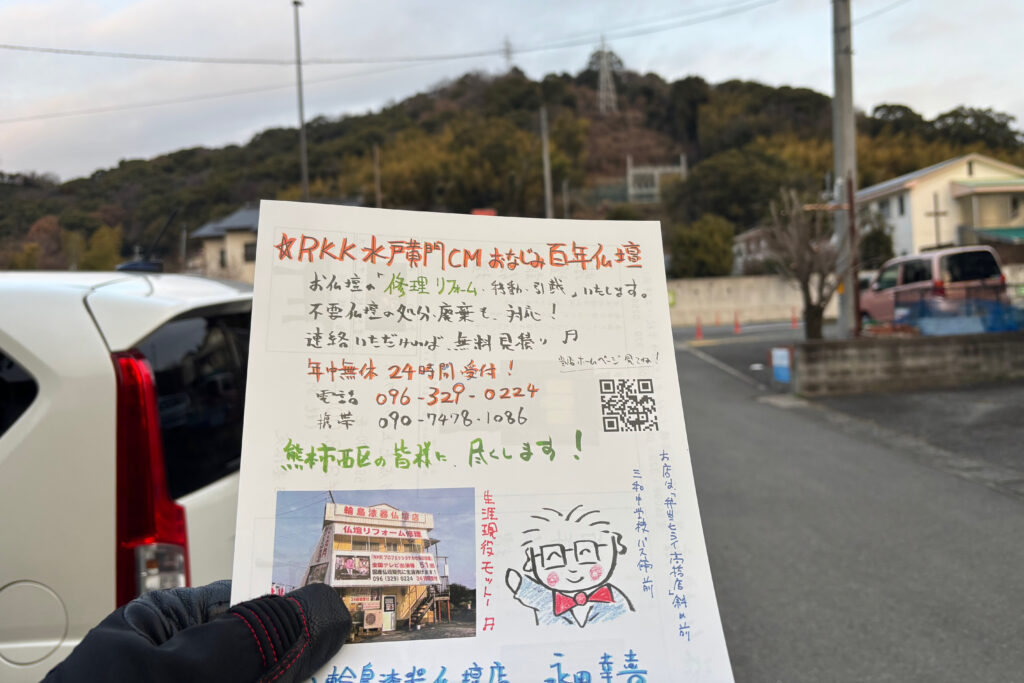 ☆RKK水戸黄門CMおなじみ百年仏壇
お仏壇の「修理リフォーム・移動・引越」いたします。
不要仏壇の処分・廃棄も、対応!
連絡いただければ、無料見積り
年中無休 24時間受付!
当店ホームページ見てね!
電話 096-329-0224
携帯 090-7478-1086
熊本市西区の皆様に、尽くします!
輪島漆器仏壇店
仏壇リフォーム修理
全国テレビ出演等 51回
096(329)0224
生涯現役モットー
お店は、「弁当ヒライ高橋店」斜め前
三和中学校バス停前
輪島漆器仏壇店 永田幸喜